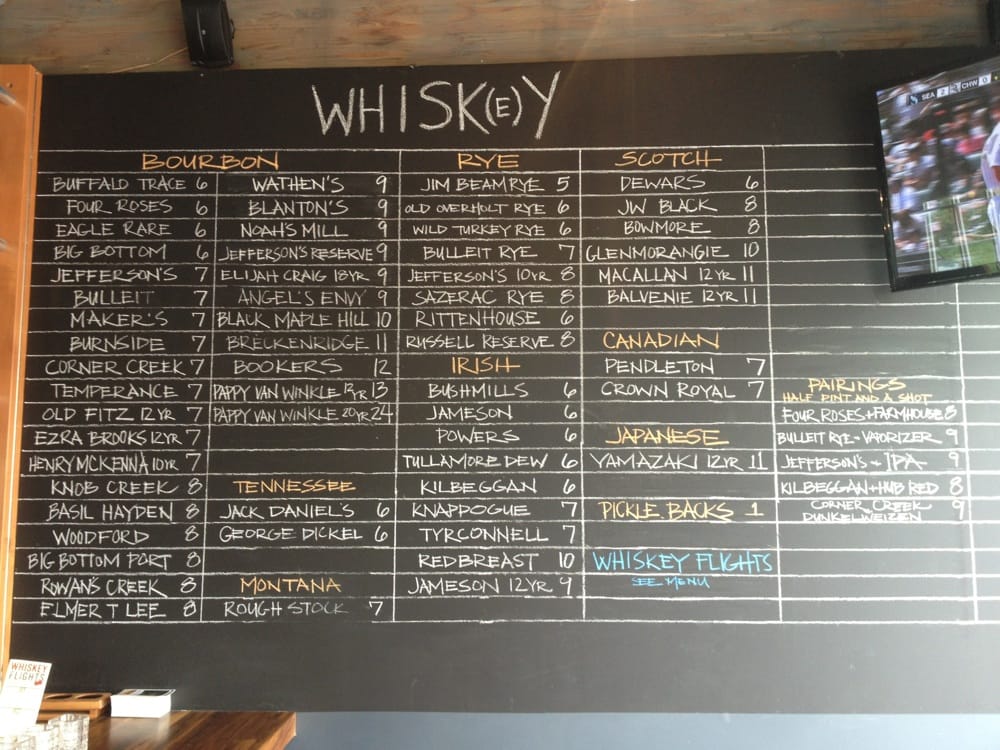 WHISK(E)Y
BOURBON
BUFFALO TRACE 6
FOUR ROSES 6
EAGLE RARE 6
BIG BOTTOM 6
JEFFERSON'S 7
BULLEIT 7
MAKER'S 7
BURNSIDE 7
CORNER CREEK 7
TEMPERANCE 7
OLD FITZ 12YR 7
EZRA BROOKS 12YR 7
HENRY MCKENNA 10YR 7
KNOB CREEK 8
BASIL HAYDEN 8
WOODFORD 8
BIG BOTTOM PORT 8
ROWAN'S CREEK 8
ELMER T LEE 8
WATHEN'S 9
BLANTON'S 9
NOAH'S MILL 9
JEFFERSON'S RESERVE 9
ELIJAH CRAIG 18YR 9
ANGEL'S ENVY 9
BLACK MAPLE HILL 10
BRECKENRIDGE 11
BOOKERS 12
PAPPY VAN WINKLE 12YR 13
PAPPY VAN WINKLE 20YR 24
TENNESSEE
JACK DANIEL'S 6
GEORGE DICKEL 6
MONTANA
ROUGH STOCK 7
RYE
JIM BEAM RYE 5
OLD OVERHOLT RYE 6
WILD TURKEY RYE 6
BULLEIT RYE 7
JEFFERSON'S 10YR 8
SAZERAC RYE 8
RITTENHOUSE 6
RUSSELL RESERVE 8
IRISH
BUSHMILLS 6
JAMESON 6
POWERS 6
TULLAMORE DEW 6
KILBEGGAN 6
KNAPPOGUE 7
TYRCONNELL 7
REDBREAST 10
JAMESON 12YR 9
SCOTCH
DEWARS 6
JW BLACK 8
BOWMORE 8
GLENMORANGIE 10
MACALLAN 12YR 11
BALVENIE 12YR 11
CANADIAN
PENDLETON 7
CROWN ROYAL 7
JAPANESE
YAMAZAKI 12YR 11
PICKLE BACKS 1
WHISKEY FLIGHTS
SEE MENU
PAIRINGS
HALF PINT AND A SHOT
FOUR ROSES + FARMHOUSE 8
BULLEIT RYE + VAPORIZER 9
JEFFERSON'S + IPA 9
KILBEGGAN + HUB RED 8
CORNER CREEK 9
DUNKELWEIZEN
SEA 2 CHW 0
WHISKEY
FLIGHTS